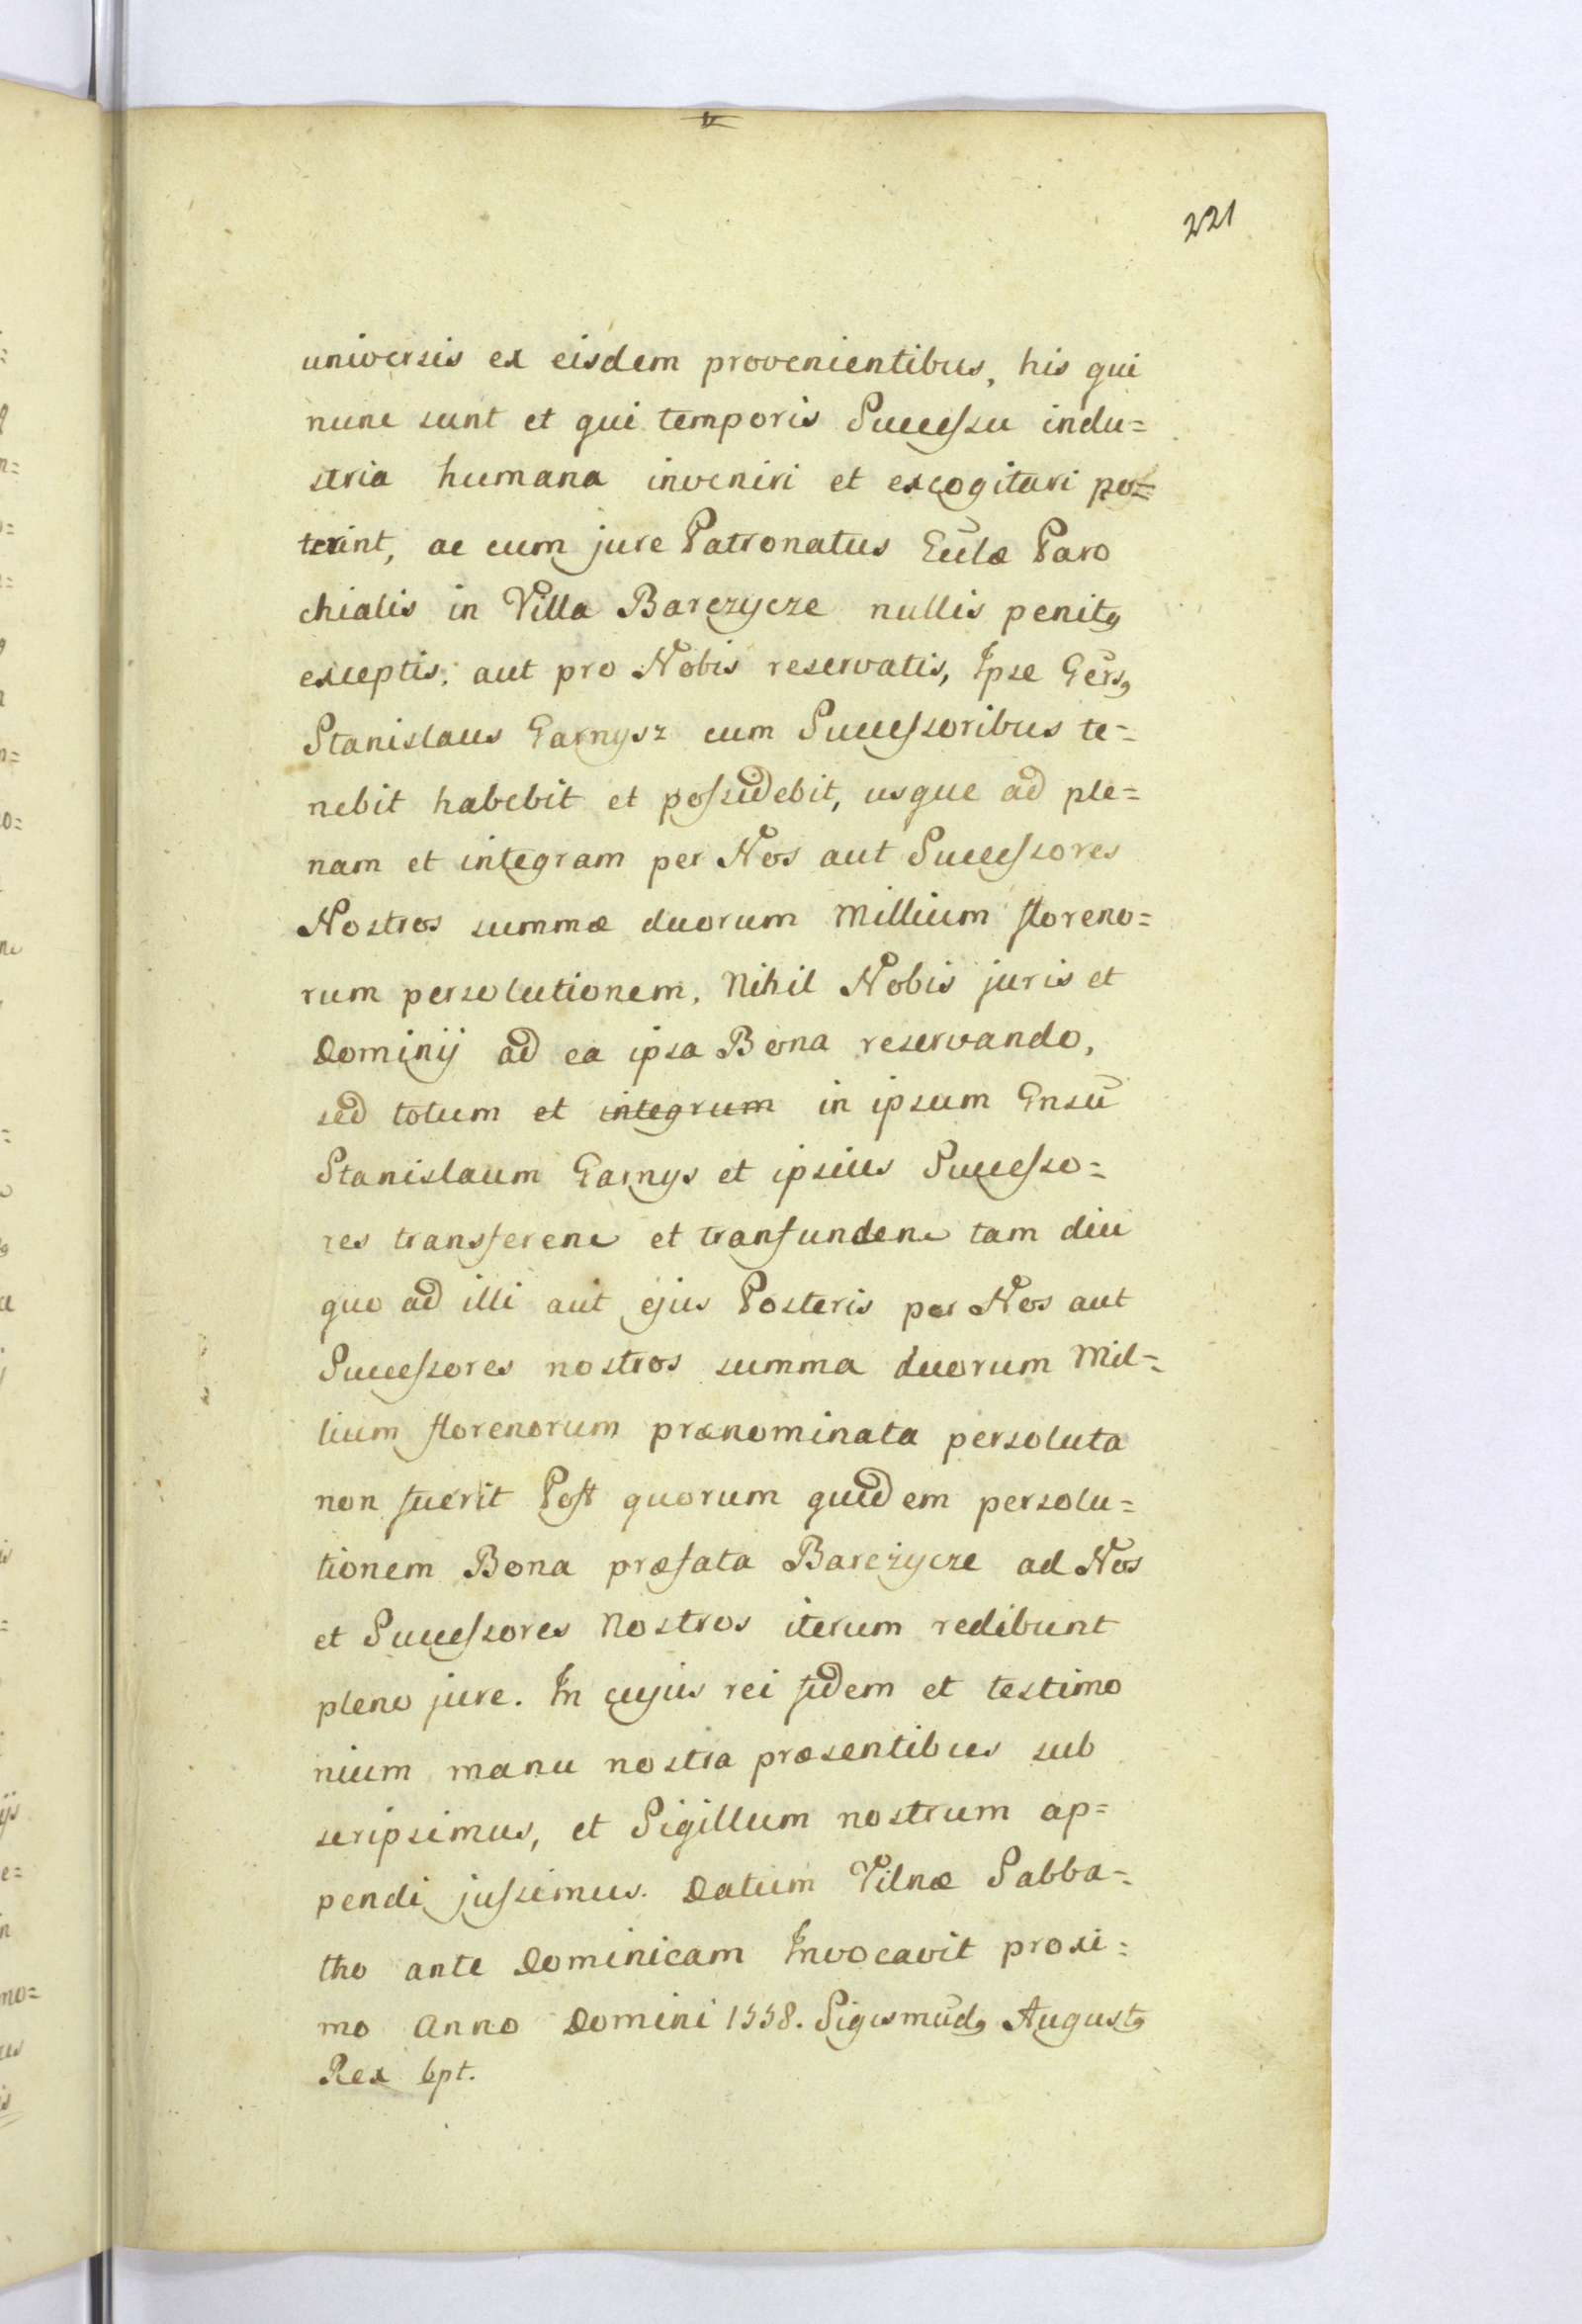 221
universis ex eisdem provenientibus, his qui
nunc sunt et qui temporis Successu indu=
stria humana inveniri et excogitari po=
terint, ac cum jure Patronatus Eccłæ Paro
chialis in Villa Barczycze nullis penitꝰ
exceptis; aut pro Nobis reservatis, Ipse Gērsꝰ
Stanislaus Garnysz cum Successoribus te=
nebit habebit et possidebit, usque ad ple=
nam et integram per Nos aut Successores
Nostros summæ duorum Millium floreno=
rum persolutionem, Nihil Nobis juris et
Dominij ad ea ipsa Bona reservando,
sed totum et integrum in ipsum Gnsū
Stanislaum Garnys et ipsius Successo=
res transferen et transfunden tam diu
quo ad illi aut ejus Posteris per Nos aut
Successores nostros summa duorum Mil=
lium florenorum prænominata persoluta
non fuerit Post quorum quidem persolu=
tionem Bona præfata Barczycze ad Nos
et Successores Nostros iterum redibunt
pleno jure. In cujus rei fidem et testimo
nium manu nostra præsentibus sub
scripsimus, et Sigillum nostrum ap=
pendi jussimus. Datum Vilnæ Sabba=
tho ante Dominicam Invocavit proxi=
mo Anno Domini 1558. Sigismūdꝰ Augustꝰ
Rex